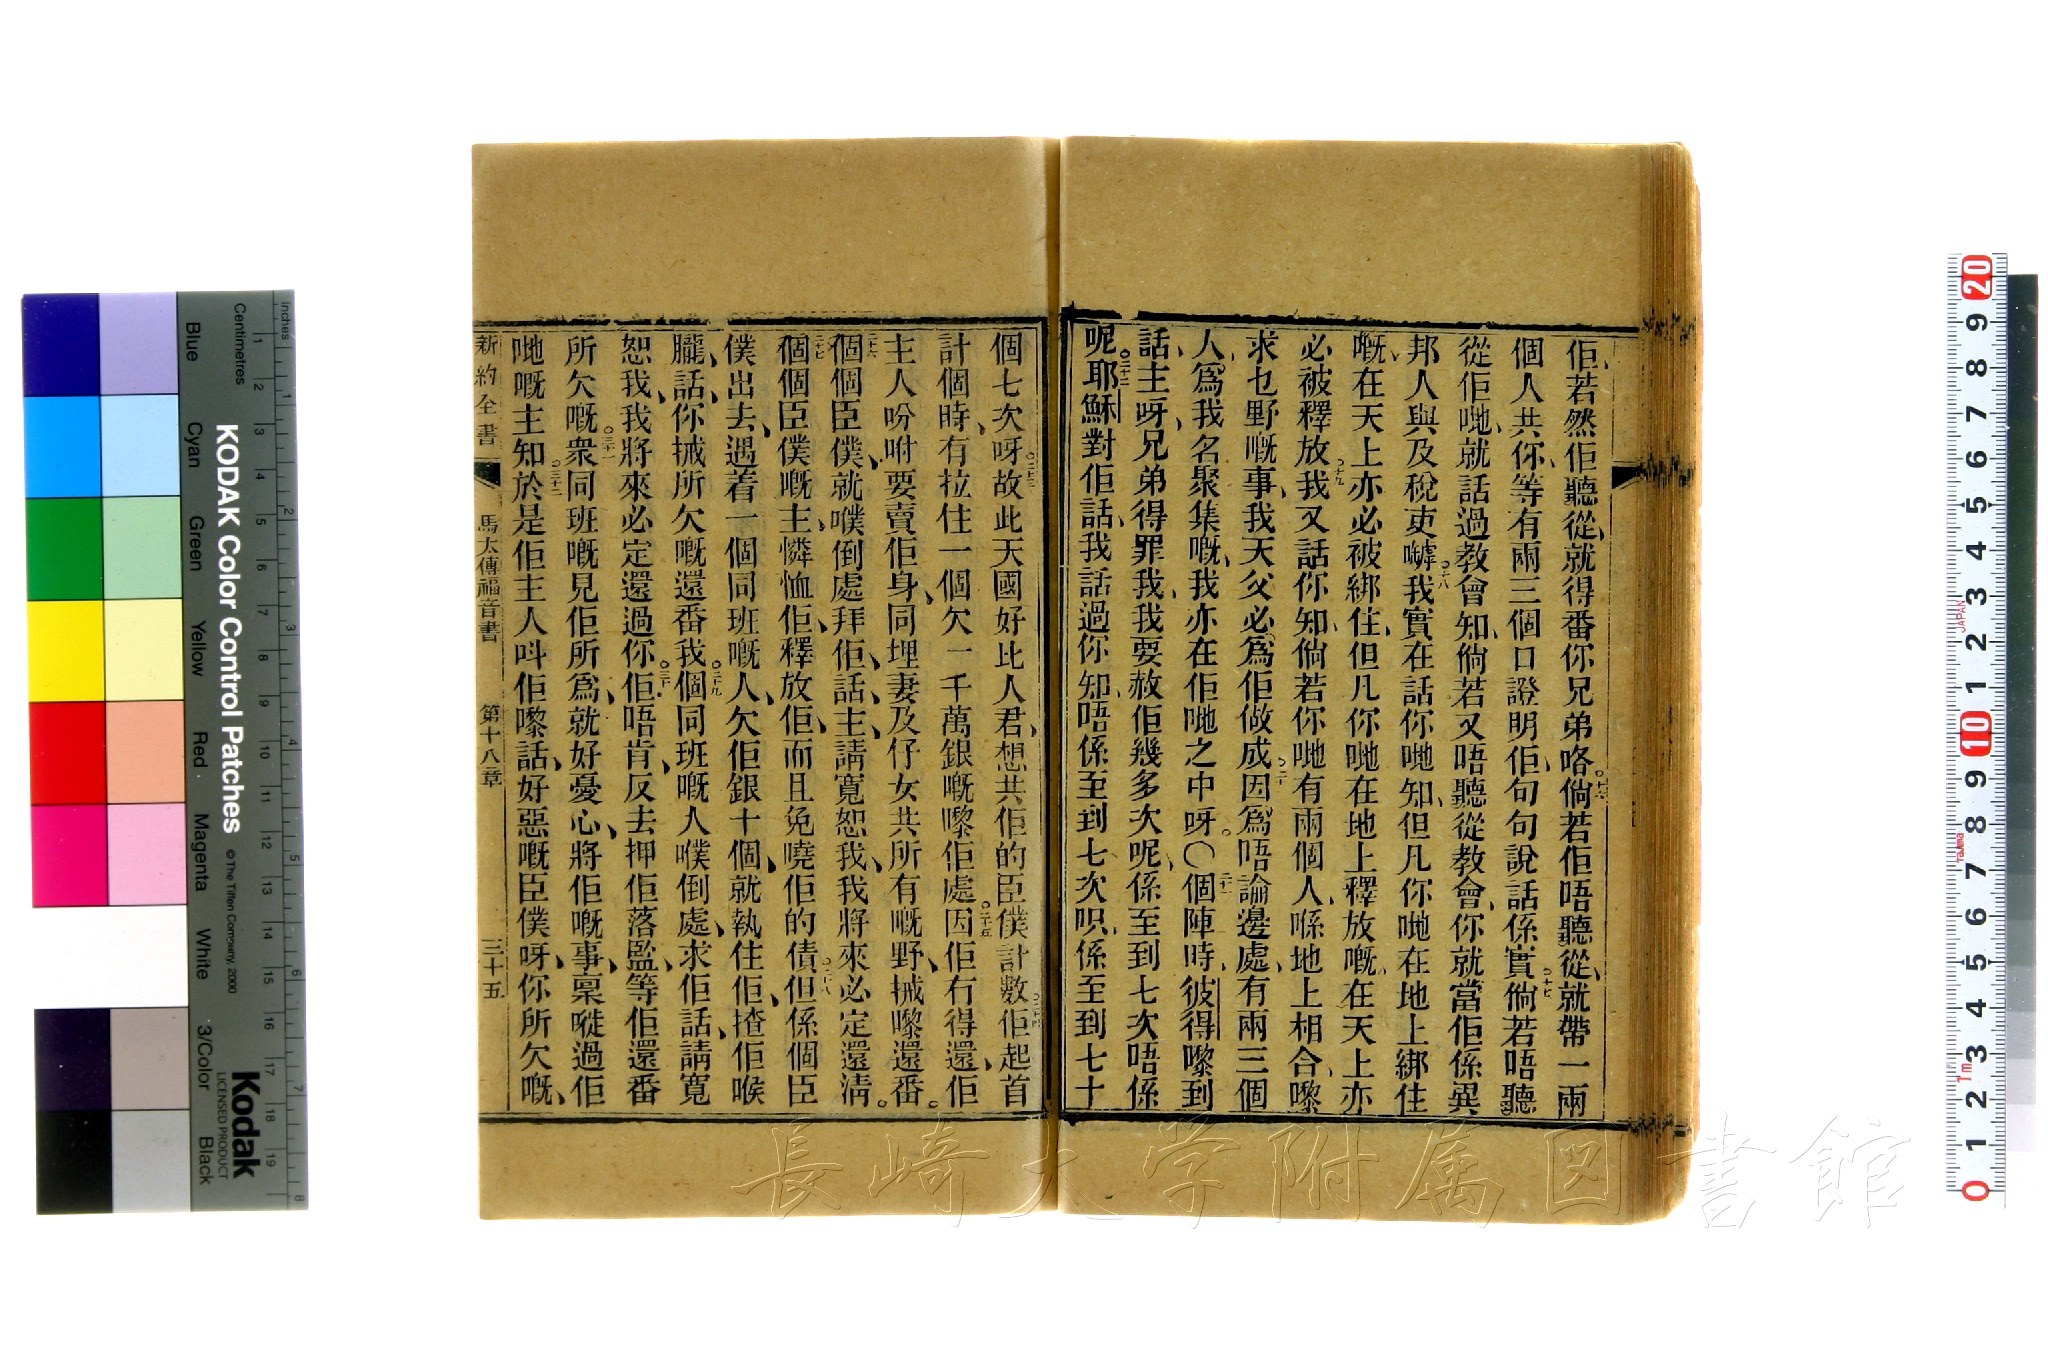 佢若然佢聽從就得番你兄弟咯倘若佢唔聽從就帶一兩
個人共你等有兩三個口證明佢句句說話係實倘若唔聽
從佢哋就話過教會知倘若又唔聽從教會你就當佢係異
邦人與及稅吏嚹我實在話你哋知但凡你哋在地上綁住
嘅在天上亦必被綁住但凡你哋在地上釋放嘅在天上亦
必被釋放我又話你知倘若你哋有兩個人喺地上相合嚟
求乜野嘅事我天父必爲佢做成因爲唔論邊處有兩三個
人爲我名聚集嘅我亦在佢哋之中呀○個陣時彼得嚟到
話主呀兄弟得罪我我要赦佢幾多次呢係至到七次唔係
呢耶穌對佢話我話過你知唔係至到七次呮係至到七十
個七次呀故此天國好比人君想共佢的臣僕計數佢起首
計個時有拉住一個欠一千萬銀嘅嚟佢處因佢冇得還佢
主人吩咐要賣佢身同埋妻及仔女共所有嘅野搣嚟還番
個個臣僕就喺倒處拜佢話主請寬恕我我將來必定還淸
個個臣僕嘅主憐恤佢釋放佢而且免曉佢的債但係個臣
僕出去遇着一個同班嘅人欠佢銀十個就執住佢揸佢喉
嚨話你搣所欠嘅還番我個同班嘅人喺倒處求佢話請寬
恕我我將來必定還過你佢唔肯反去押佢落監等佢還番
所欠嘅衆同班嘅見佢所爲就好憂心將佢嘅事稟嗺過佢
哋嘅主知於是佢主人呌佢嚟話好惡嘅臣僕呀你所欠嘅
新約全書 馬太傳福音書 第十八章 三十五
KODAK Color Control Patches
© The Tiffen Company, 2000
Kodak
LICENSED PRODUCT
Blue Cyan Green Yellow Red Magenta White 3/Color Black
Centimetres 1 2 3 4 5 6 7 8 9 10 11 12 13 14 15 16 17 18 19
Inches 1 2 3 4 5 6 7 8
20 9 8 7 6 5 4 3 2 1 10 9 8 7 6 5 4 3 2 1 0
JAPAN
1m
長崎大学附属図書館